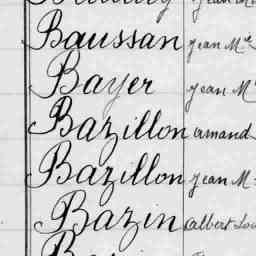 Baussan Jean M
Bayer Jean M
Bazillon Armand
Bazillon Jean M
Bazin Albert Lou